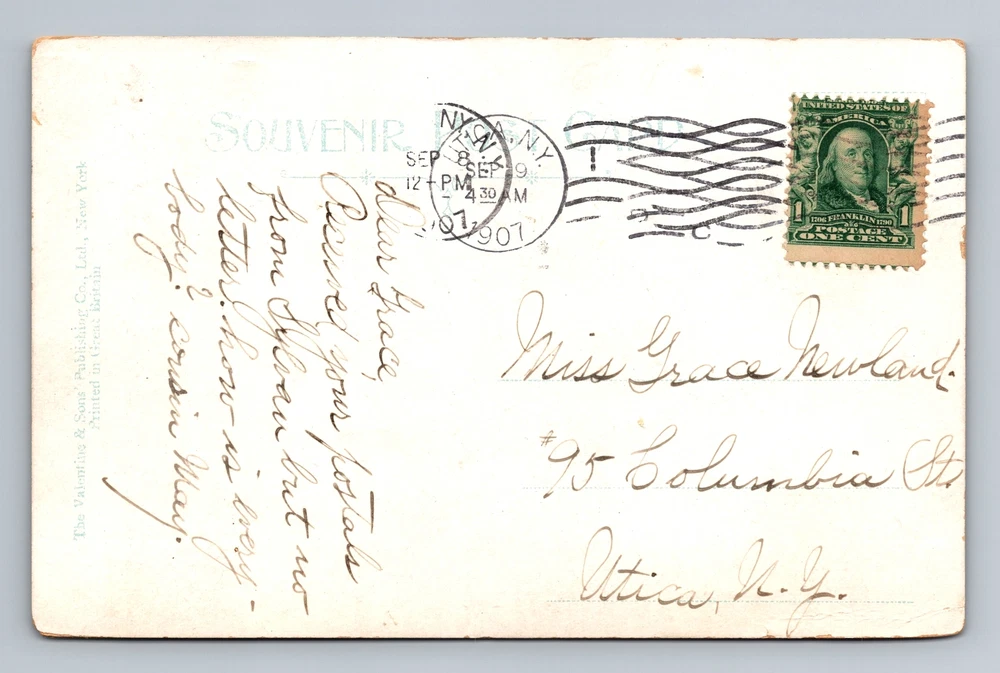 SOUVENIR POST CARD
NY, N.Y.
SEP 8
12-PM
07
UTICA, N.Y.
SEP 9
4 30 AM
1907
UNITED STATES OF
AMERICA
1 1
1706 FRANKLIN 1790
POSTAGE
ONE CENT
Dear Grace,
Received your postals
from Sylvan but no
letter. how is every-
body? cousin May.
Miss Grace Newland.
#95 Columbia St.
Utica, N.Y.
The Valentine & Sons' Publishing Co., Ltd., New York
Printed in Great Britain